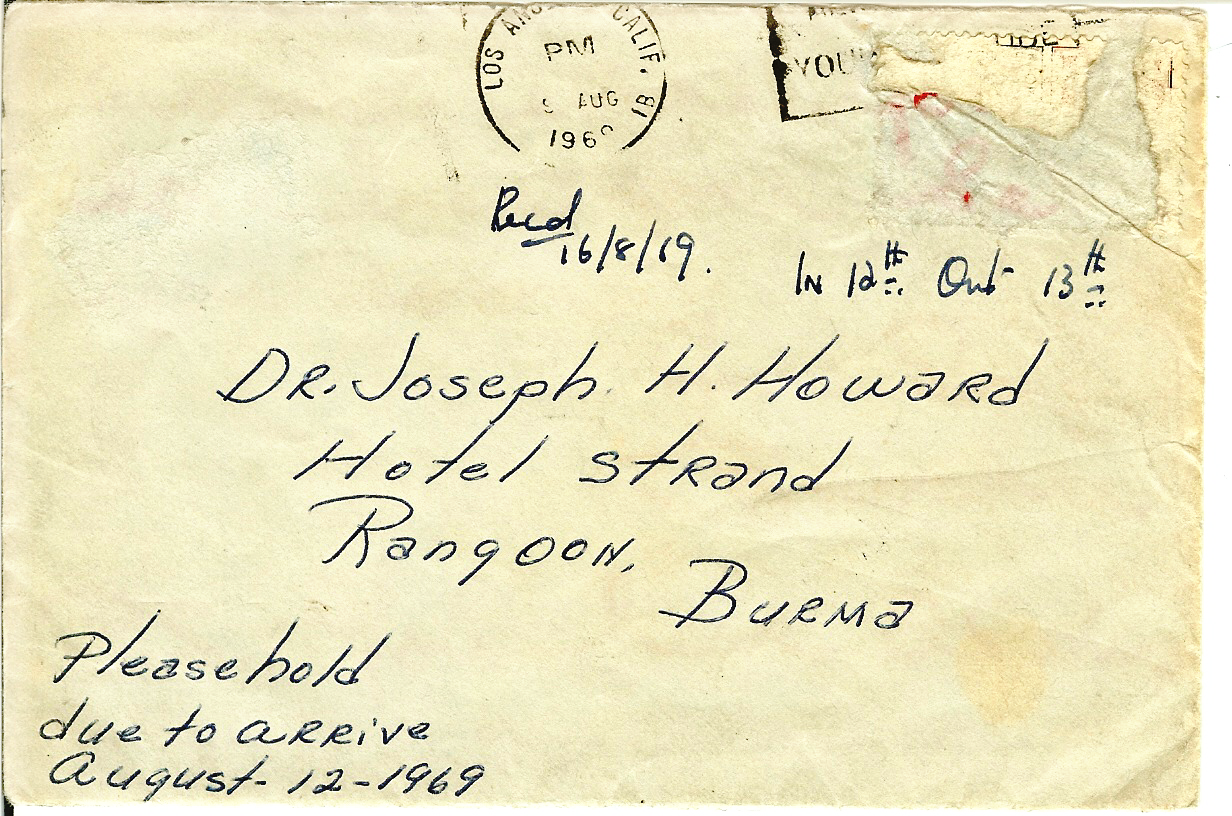 LOS ANG CALIF. 1B
PM
9 AUG
196
YOU
Recd
16/8/69.
In 12th Out 13th
DR. Joseph. H. Howard
Hotel Strand
Rangoon,
Burma
Please hold
due to arrive
August-12-1969